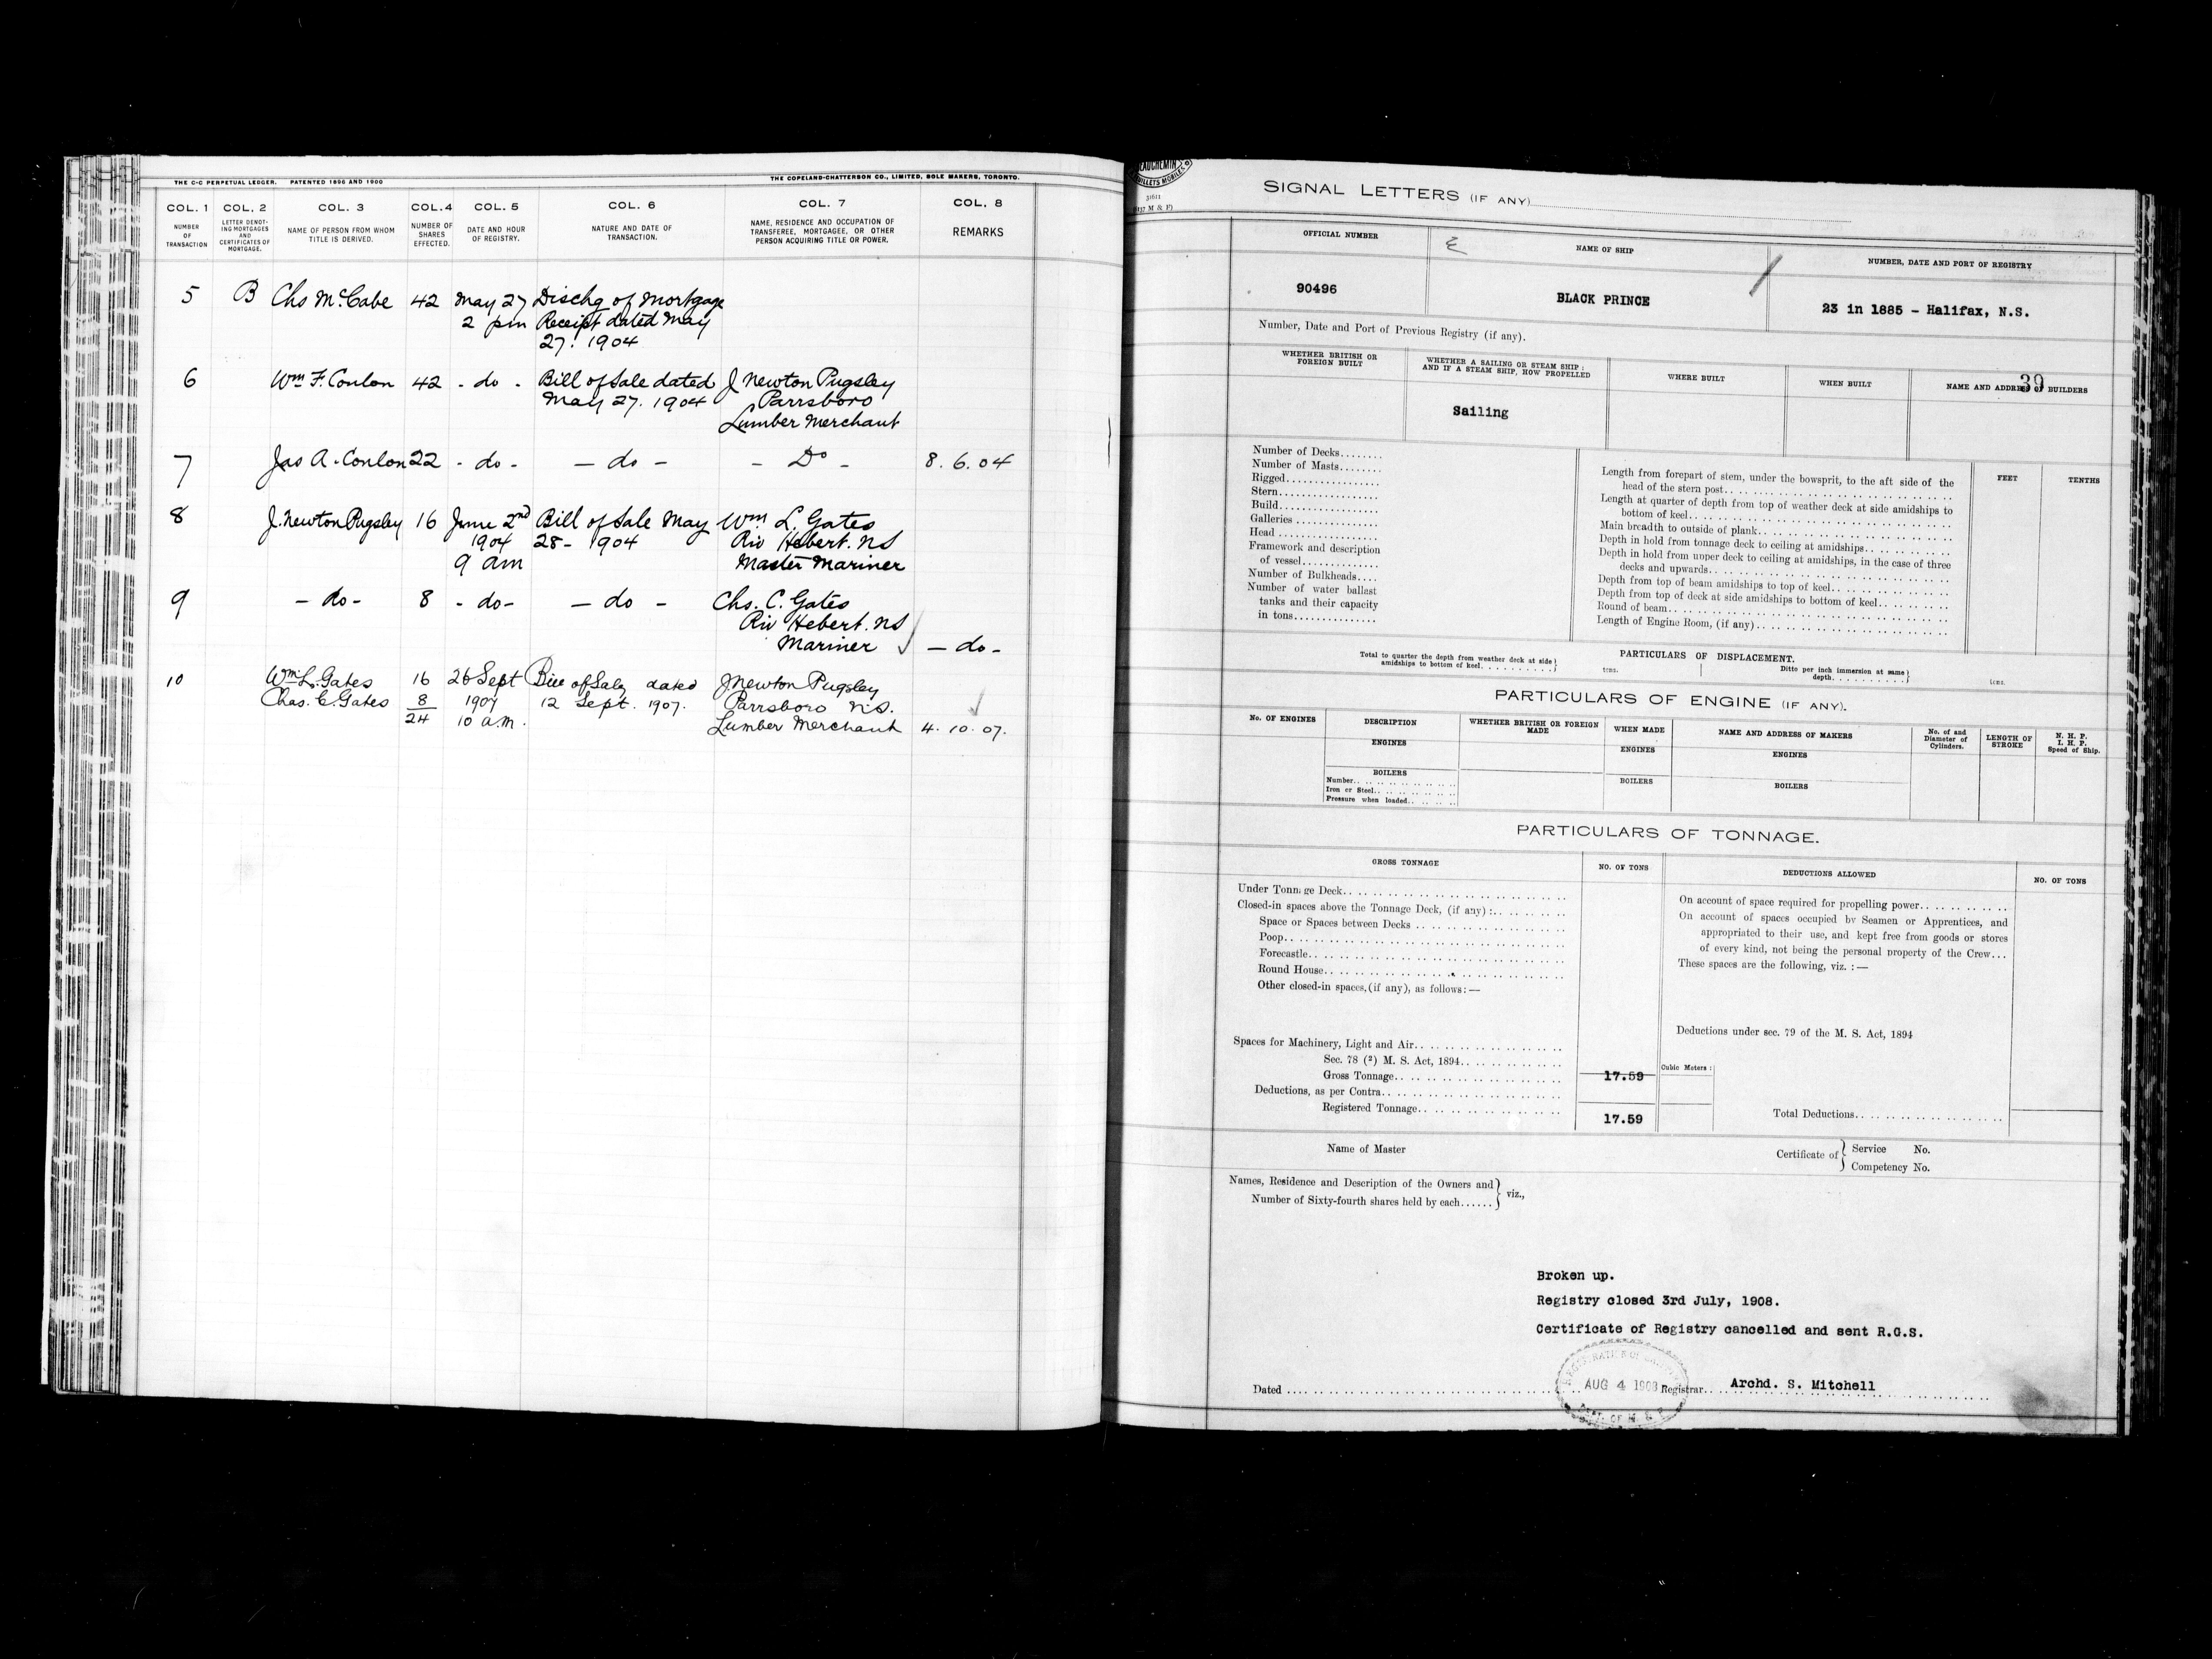 THE C-C PERPETUAL LEDGER. PATENTED 1896 AND 1900
THE COPELAND-CHATTERSON CO., LIMITED, SOLE MAKERS, TORONTO.
COL. 1 COL. 2 COL. 3 COL. 4 COL. 5 COL. 6 COL. 7 COL. 8
NUMBER OF TRANSACTION
LETTER DENOT-ING MORTGAGES AND CERTIFICATES OF MORTGAGE.
NAME OF PERSON FROM WHOM TITLE IS DERIVED.
NUMBER OF SHARES EFFECTED.
DATE AND HOUR OF REGISTRY.
NATURE AND DATE OF TRANSACTION.
NAME, RESIDENCE AND OCCUPATION OF TRANSFEREE, MORTGAGEE, OR OTHER PERSON ACQUIRING TITLE OR POWER.
REMARKS
5 B Chs McCabe 42 May 27 Dischg of Mortgage
2 pm Receipt dated May
27. 1904
6 Wm F. Conlon 42 - do - Bill of Sale dated J Newton Pugsley
May 27. 1904 Parrsboro
Lumber Merchant
7 Jas A. Conlon 22 - do - - do - - Do - 8. 6. 04
8 J. Newton Pugsley 16 June 2nd Bill of Sale May Wm L. Gates
1904 28 - 1904 Riv Hebert. NS
9 am Master Mariner
9 - do - 8 - do - - do - Chs. C. Gates
Riv Hebert. NS
Mariner - do -
10 Wm L. Gates 16 26 Sept Bill of Sale dated J. Newton Pugsley
Chas. C. Gates 8 1907 12 Sept. 1907. Parrsboro N.S.
24 10 a.m. Lumber Merchant 4. 10. 07.
SIGNAL LETTERS (IF ANY)
OFFICIAL NUMBER
NAME OF SHIP
NUMBER, DATE AND PORT OF REGISTRY
90496
BLACK PRINCE
23 in 1885 - Halifax, N.S.
Number, Date and Port of Previous Registry (if any).
WHETHER BRITISH OR FOREIGN BUILT
WHETHER A SAILING OR STEAM SHIP: AND IF A STEAM SHIP, HOW PROPELLED
WHERE BUILT
WHEN BUILT
NAME AND ADDRESS OF BUILDERS
39
Sailing
Number of Decks
Number of Masts
Rigged
Stern
Build
Galleries
Head
Framework and description
of vessel
Number of Bulkheads
Number of water ballast
tanks and their capacity
in tons
FEET TENTHS
Length from forepart of stem, under the bowsprit, to the aft side of the
head of the stern post
Length at quarter of depth from top of weather deck at side amidships to
bottom of keel
Main breadth to outside of plank
Depth in hold from tonnage deck to ceiling at amidships
Depth in hold from upper deck to ceiling at amidships, in the case of three
decks and upwards
Depth from top of beam amidships to top of keel
Depth from top of deck at side amidships to bottom of keel
Round of beam
Length of Engine Room, (if any)
PARTICULARS OF DISPLACEMENT.
Total to quarter the depth from weather deck at side
amidships to bottom of keel tons.
Ditto per inch immersion at same
depth tons.
PARTICULARS OF ENGINE (IF ANY).
No. OF ENGINES
DESCRIPTION
WHETHER BRITISH OR FOREIGN MADE
WHEN MADE
NAME AND ADDRESS OF MAKERS
No. of and Diameter of Cylinders.
LENGTH OF STROKE
N. H. P.
I. H. P.
Speed of Ship.
ENGINES ENGINES ENGINES
BOILERS BOILERS BOILERS
Number
Iron or Steel
Pressure when loaded
PARTICULARS OF TONNAGE.
GROSS TONNAGE
NO. OF TONS
DEDUCTIONS ALLOWED
NO. OF TONS
Under Tonnage Deck
Closed-in spaces above the Tonnage Deck, (if any):
Space or Spaces between Decks
Poop
Forecastle
Round House
Other closed-in spaces, (if any), as follows:—
Spaces for Machinery, Light and Air
Sec. 78 (2) M. S. Act, 1894
Gross Tonnage 17.59
Deductions, as per Contra
Registered Tonnage 17.59
Cubic Meters:
On account of space required for propelling power
On account of spaces occupied by Seamen or Apprentices, and
appropriated to their use, and kept free from goods or stores
of every kind, not being the personal property of the Crew...
These spaces are the following, viz.:—
Deductions under sec. 79 of the M. S. Act, 1894
Total Deductions
Name of Master
Certificate of Service No.
Competency No.
Names, Residence and Description of the Owners and
Number of Sixty-fourth shares held by each viz.,
Broken up.
Registry closed 3rd July, 1908.
Certificate of Registry cancelled and sent R.G.S.
AUG 4 1908
DEPT. OF M. & F.
Dated Registrar. Archd. S. Mitchell